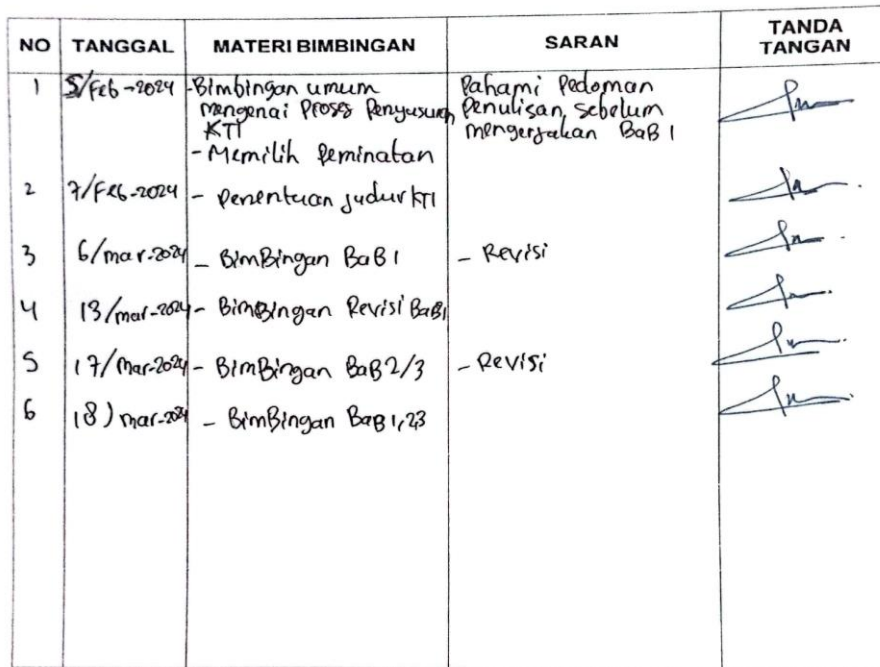 NO TANGGAL MATERI BIMBINGAN SARAN TANDA TANGAN
1 5/Feb-2024 -Bimbingan umum mengenai Proses Penyusunan KTI Pahami Pedoman Penulisan, sebelum mengerjakan BaB 1
- Memilih Peminatan
2 7/Feb-2024 - Penentuan judur KTI
3 6/mar-2024 - BimBingan BaB 1 - Revisi
4 13/mar-2024 - BimBingan Revisi BaB1
5 17/Mar-2024 - BimBingan BaB 2/3 - Revisi
6 18) mar-2024 - BimBingan BaB 1,2,3